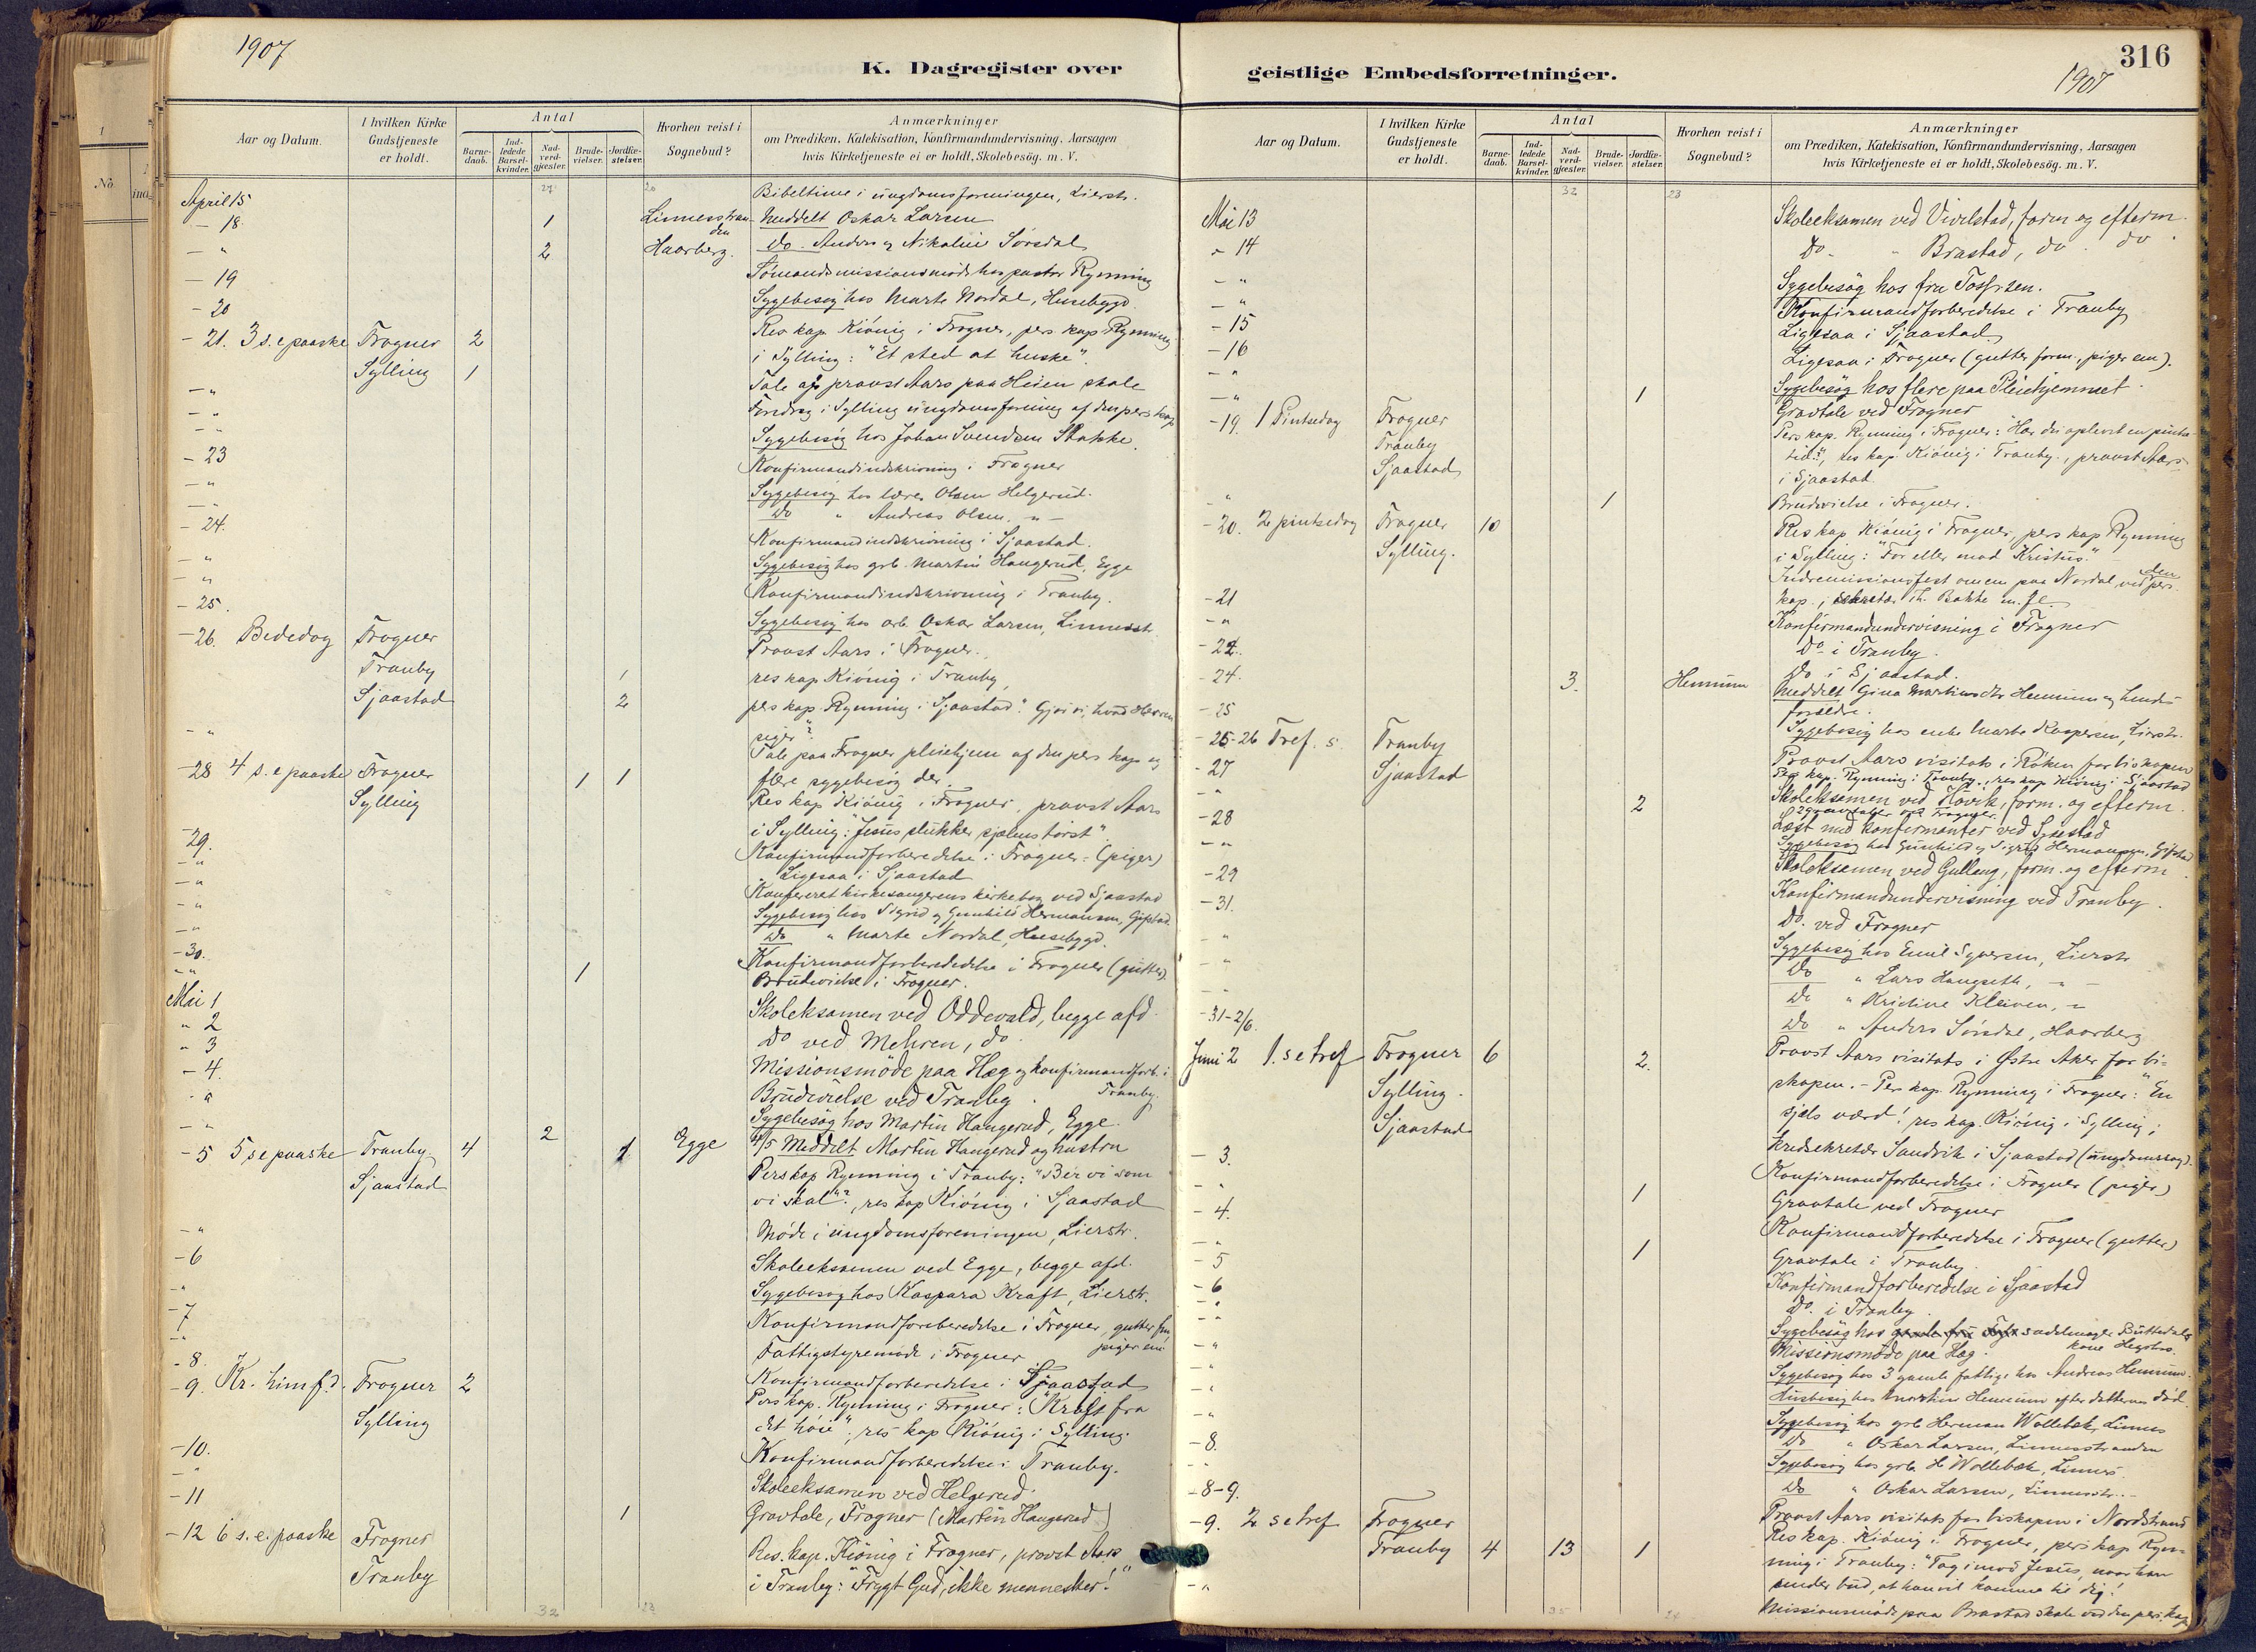 1907
K. Dagregister over
Aar og Datum.
I hvilken Kirke Gudstjeneste er holdt.
Antal
Barnedaab.
Indledede Barselkvinder.
Nadverdgjæster.
Brudevielser.
Jordfæstelser.
Hvorhen reist i Sognebud?
Anmærkninger
om Prædiken, Katekisation, Konfirmandundervisning, Aarsagen
hvis Kirketjeneste ei er holdt, Skolebesög, m. V.
April 15 Bibeltime i ungdomsforeningen, Lierstr.
- 18. 1 Linnesstranden Meddelt Oskar Larsen
- " 2 Haarberg. Do. Anders og Nikoline Sørsdal
- 19 Sømandsmissionsmöde hos pastor Rynning
- 20 Sygebesög hos Marte Nordal, Husebygd.
- 21. 3 s. e paaske Frogner 2 Res kap. Kiönig i Frogner, pers kap Rynning
Sylling 1 i Sylling: "Et sted at huske".
- " Tale af provst Aars paa Heien skole
- " Foredrag i Sylling ungdomsforening af den pers kap
- " Sygebesög hos Johan Svendsen Stokke.
- 23 Konfirmandindskrivning i Frogner
- " Sygebesög hos lærer Olsen Helgerud.
- " Do " Andreas Olsen, - " -
- 24. Konfirmandindskrivning i Sjaastad.
- " Sygebesög hos grb. Martin Haugerud, Egge
- " Konfirmandindskrivning i Tranby.
- 25. Sygebesög hos arb. Oskar Larsen, Linnesstr.
- 26. Bededag Frogner Provst Aars i Frogner.
Tranby 1 res kap Kiönig i Tranby,
Sjaastad 2 pers kap. Rynning i Sjaastad: "Gjör vi, hvad Herren
siger?"
- " Tale paa Frogner pleiehjem af den pers kap og
flere sygebesög der.
- 28 4 s. e paaske Frogner 1 1 Res kap Kiönig i Frogner, provst Aars
Sylling i Sylling: "Jesus slukker sjælens törst".
- 29. Konfirmandforberedelse i Frogner (piger)
- " Ligesaa i Sjaastad
- " Konfereret kirkesangerens kirkebog ved Sjaastad
- " Sygebesög hos Sigrid og Gunhild Hermansen, Gifstad.
- " Do " Marte Nordal, Husebygd.
- 30. Konfirmandforberedelse i Frogner (gutter)
- " 1 Brudevielse i Frogner.
Mai 1 Skoleksamen ved Oddevald, begge afd.
" 2 Do ved Mehren, do
" 3 Missionsmöde paa Hæg og konfirmandforb. i
Tranby.
- 4. Brudevielse ved Tranby.
- " Sygebesög hos Martin Haugerud, Egge.
- " 2 Egge 4/5 Meddelt Martin Haugerud og hustru
- 5 5 s e paaske Tranby 4 1 Pers kap Rynning i Tranby: "Ber vi som
Sjaastad vi skal"?, res kap Kiönig i Sjaastad
- " Möde i ungdomsforeningen, Lierstr.
- 6 Skoleeksamen ved Egge, begge afd.
- " Sygebesög hos Kaspara Kraft, Lierstr.
- 7 Konfirmandforberedelse i Frogner, gutter fm,
piger em
- " Fattigstyremöde i Frogner
- 8. Konfirmandforberedelse i Sjaastad
- 9. Kr. himf.d. Frogner 2 Pers kap. Rynning i Frogner: "Kraft fra
Sylling det höie"; res kap Kiönig i Sylling.
- 10. Konfirmandforberedelse i Tranby.
- " Skoleeksamen ved Helgerud
- 11 1 Gravtale, Frogner (Martin Haugerud)
- 12 6 s. e. paaske Frogner Res. kap. Kiönig i Frogner, provst Aars
Tranby i Tranby: "Frygt Gud, ikke mennesker!"
32 23
316
1907
geistlige Embedsforretninger.
Aar og Datum.
I hvilken Kirke Gudstjeneste er holdt.
Antal
Barnedaab.
Indledede Barselkvinder.
Nadverdgjæster.
Brudevielser.
Jordfæstelser.
Hvorhen reist i Sognebud?
Anmærkninger
om Prædiken, Katekisation, Konfirmandundervisning, Aarsagen
hvis Kirketjeneste ei er holdt, Skolebesög, m. V.
32 23
Mai 13 Skoleeksamen ved Vivelstad, form og efterm.
- 14 Do. " Brastad, do. do.
- " Sygebesög hos fru Tossen.
- " Konfirmandforberedelse i Tranby
- 15 Ligesaa i Sjaastad
- 16 Ligesaa i Frogner (gutter form., piger em).
- " Sygebesög hos flere paa Pleiehjemmet.
- " 1 Gravtale ved Frogner
- 19. 1 Pintsedag Frogner Pers kap. Rynning i Frogner: Har du oplevet en pintse-
Tranby tid?", res kap. Kiönig i Tranby, provst Aars
Sjaastad i Sjaastad.
" 1 Brudevielse i Frogner.
- 20. 2 pintsedag Frogner 10 Res kap Kiönig i Frogner, pers kap Rynning
Sylling. i Sylling: "For eller mod Kristus."
Indremissionsfest om em paa Nordal, ved den pers.
kap., sekretær Th. Bakke m. fl.
- 21 Konfirmandundervisning i Frogner
- " Do i Tranby.
- 22. Do i Sjaastad.
- 24. 3. Hennum Meddelt Gina Martinsdtr Hennum og hendes
forældre.
- 25 Sygebesög hos enke Marte Kaspersen, Lierstr.
- 25-26 Tref. s. Tranby Provst Aars visitats i Röken for biskopen
Sjaastad Pers kap. Rynning i Tranby, res kap Kiönig i Sjaastad
- 27 Skoleeksamen ved Hövik, form. og efterm.
- " 2 2 gravtaler ved Frogner.
- 28 Læst med konfirmanter ved Sysestad
- " Sygebesög hos Gunhild og Sigrid Hermansen, Gifstad
- 29 Skoleksamen ved Gulleng, form. og efterm
- 31. Konfirmandundervisning ved Tranby.
Do. ved Frogner
- " Sygebesög hos Emil Syversen, Lierstr
- " Do " Lars Haugseth, - " -
Do " Kristine Kleiven, - "
- " Do " Anders Sørsdal, Haarberg
- 31-2/6. Provst Aars visitats i Østre Aker for bi-
Juni 2 1. s e tref Frogner 6 2. skopen. - Pers kap. Rynning i Frogner: "En
Sylling. sjæls værd!" res kap. Kiönig i Sylling;
Sjaastad kredssekretær Sandvik i Sjaastad (ungdomssag).
- 3. Konfirmandforberedelse i Frogner (piger)
- " 1 Gravtale ved Frogner
- 4. Konfirmandforberedelse i Frogner (gutter)
- " 1 Gravtale i Tranby.
- 5 Konfirmandforberedelse i Sjaastad
- 6 Do. i Tranby.
- " Sygebesög hos sadelmager Buttedals
kone Hegstro.
- " Missionsmöde paa Hæg.
- " Sygebesög hos 3 gamle fattige hos Andreas Hennum.
- " Husbesög hos Martin Hennum efter datterens död.
- " Sygebesög hos grb Herman Wollebæk, Linnes
- " Do " Oskar Larsen, Linnesstranden
- 8. Sygebesög hos grb H Wollebæk, Linnes.
- " Do " Oskar Larsen, Linnesstr. -
- 8-9. Provst Aars visitats for biskopen i Nordstrand
- 9. 2 s e tref Frogner Res kap. Kiönig i Frogner, pers kap Ryn-
Tranby 4 13 1 ning i Tranby: "Tag imod Jesus, naar han
sender bud, at han vil komme til dig!
- " Missionsmöde paa Brastad skole ved den pers. kap